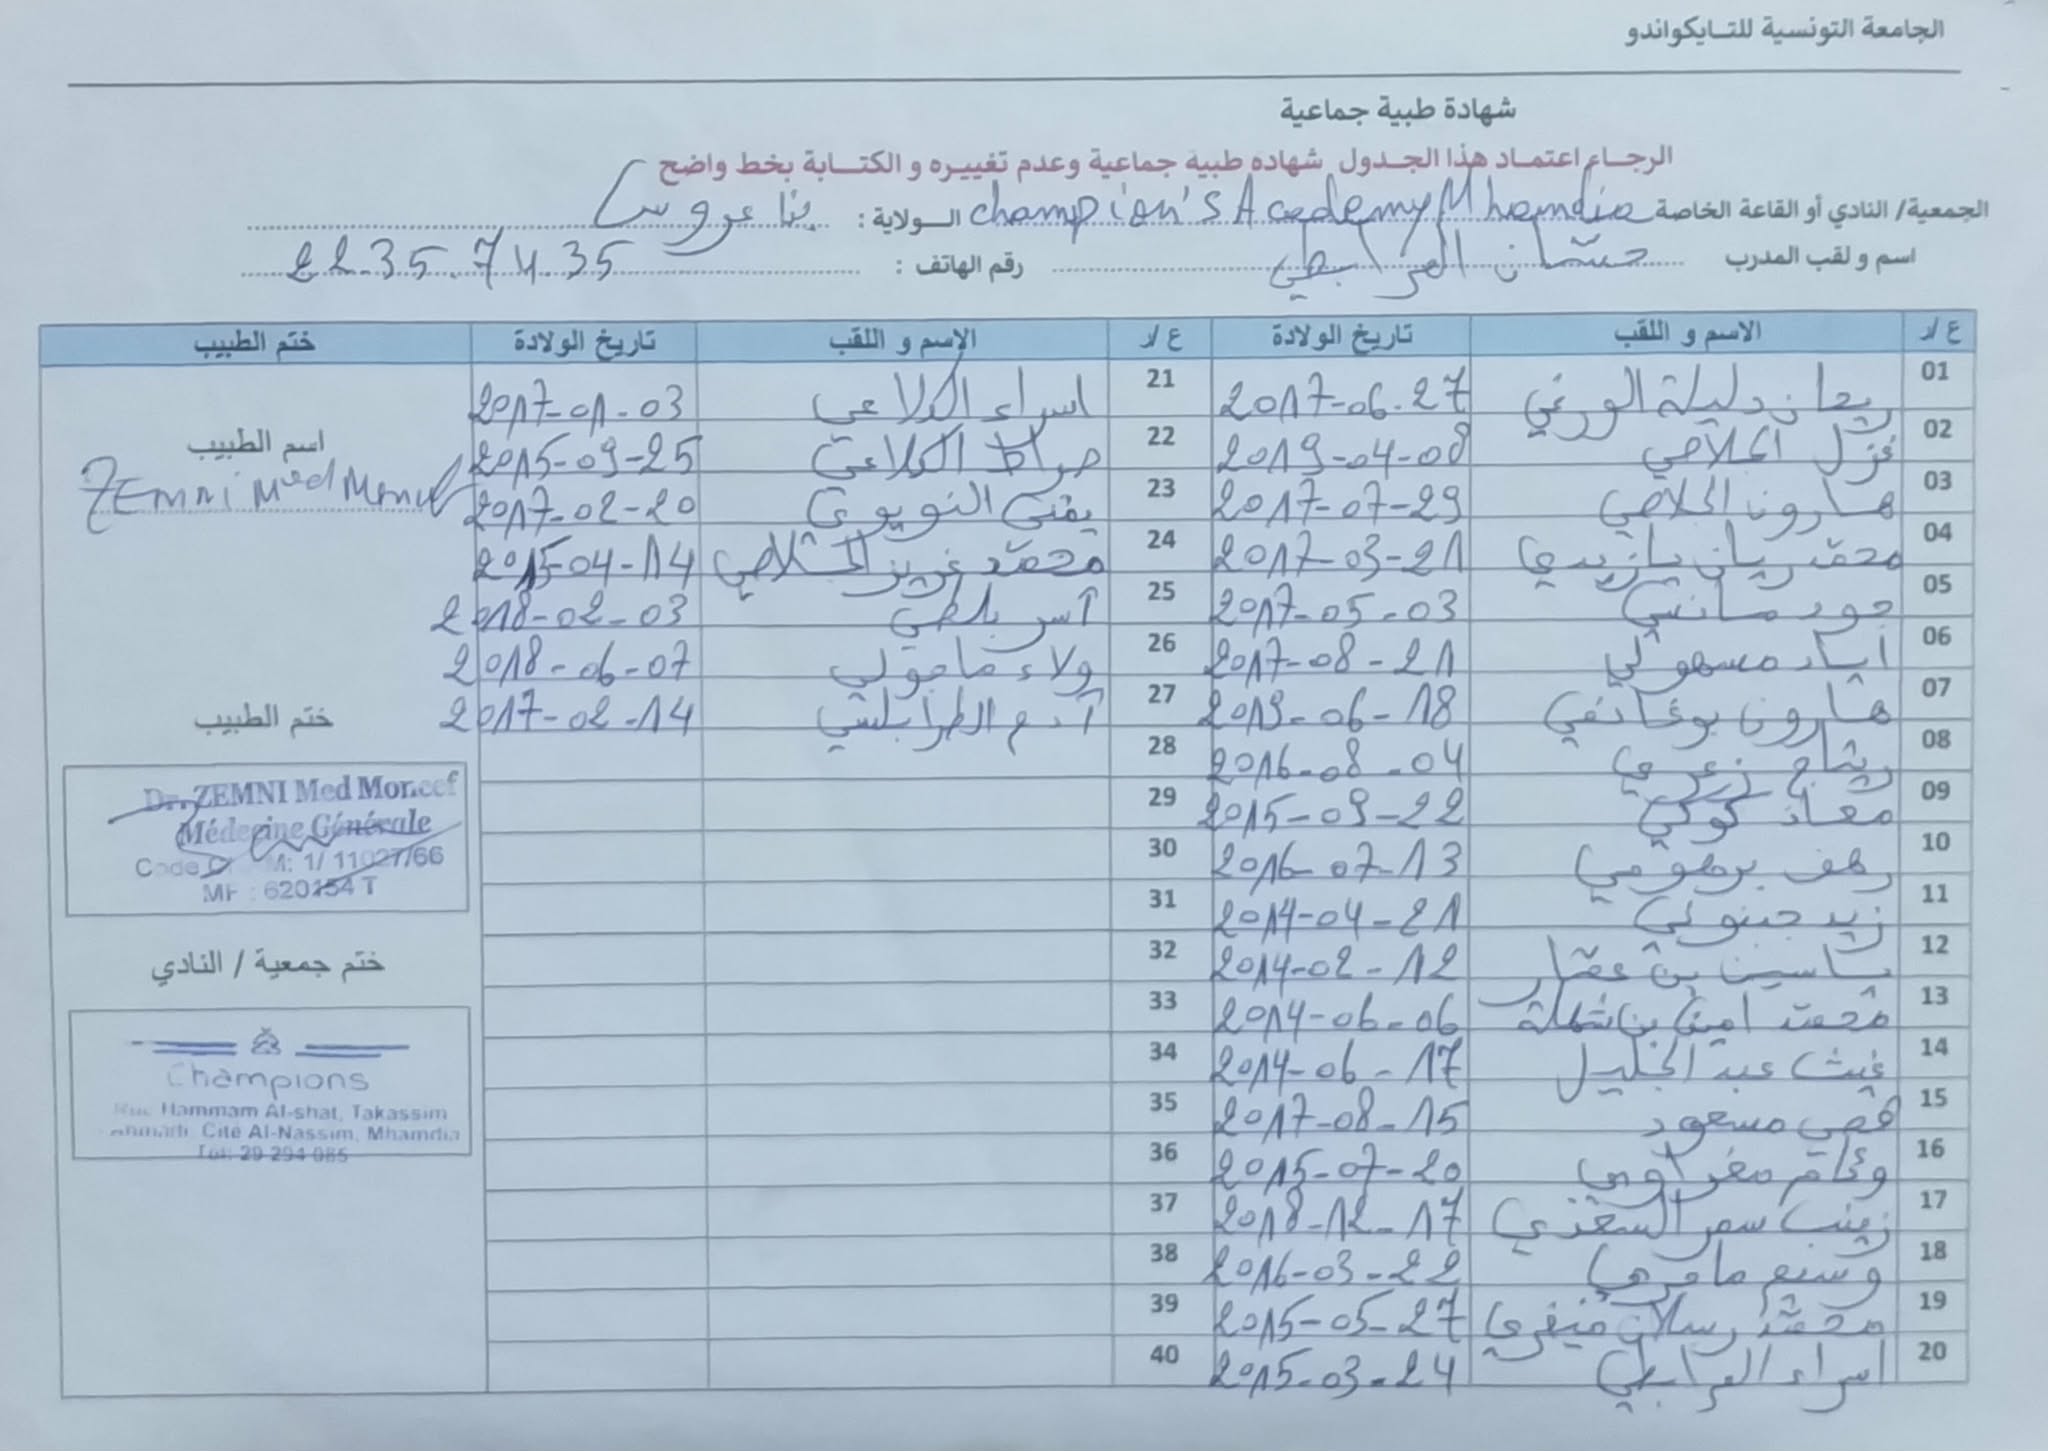 الجامعة التونسية للتايكواندو
شهادة طبية جماعية
الرجاء اعتماد هذا الجدول شهاده طبية جماعية وعدم تغييره و الكتابة بخط واضح
الجمعية/ النادي أو القاعة الخاصة champion's Academy Mhamdia الولاية : بنا عروس
اسم و لقب المدرب حسان المرابطي رقم الهاتف : 22.35.74.35
ع/ر الاسم و اللقب تاريخ الولادة ع/ر الاسم و اللقب تاريخ الولادة ختم الطبيب
01 ريحان دليلة الورغي 2017-06-27 21 اسراء الكلاعي 2017-01-03
02 غزل الجلاصي 2019-04-08 22 صراط الكلاعي 2015-09-25
اسم الطبيب
ZEmni Med Moncef
03 هارون الجلاصي 2017-07-29 23 يقين النويوي 2017-02-20
04 محمد ريان يازيدي 2017-03-21 24 محمد عزيز الجلاصي 2015-04-14
05 جود مانسي 2017-05-03 25 آسر بلطي 2018-02-03
06 اياد مسهولي 2017-08-21 26 ولاء ماجولي 2018-06-07
07 هارون بوغانمي 2019-06-18 27 آدم الطرابلسي 2017-02-14
ختم الطبيب
08 ريتاج زعري 2016-08-04 28
09 معاذ كوكي 2015-09-22 29
10 رهف برهومي 2016-07-13 30
11 زيد جبنوني 2014-04-21 31
12 ياسين بن عمار 2014-02-12 32
13 محمد امين بن شملة 2014-06-06 33
14 غيث عبد الجليل 2014-06-17 34
15 قصي مسعود 2017-08-15 35
16 وئام مغراوي 2015-07-20 36
17 زينب سمر السعدي 2018-12-17 37
18 وسيم ماجري 2016-03-22 38
19 محمد رسلان منيفري 2015-05-27 39
20 اسراء المرابطي 2015-03-24 40
Dr. ZEMNI Med Moncef
Médecine Générale
Code M: 1/ 11027/66
MF : 620154 T
ختم جمعية / النادي
Champions
Rue Hammam Al-shat, Takassim
Cité Al-Nassim, Mhamdia
Tel: 29 294 085